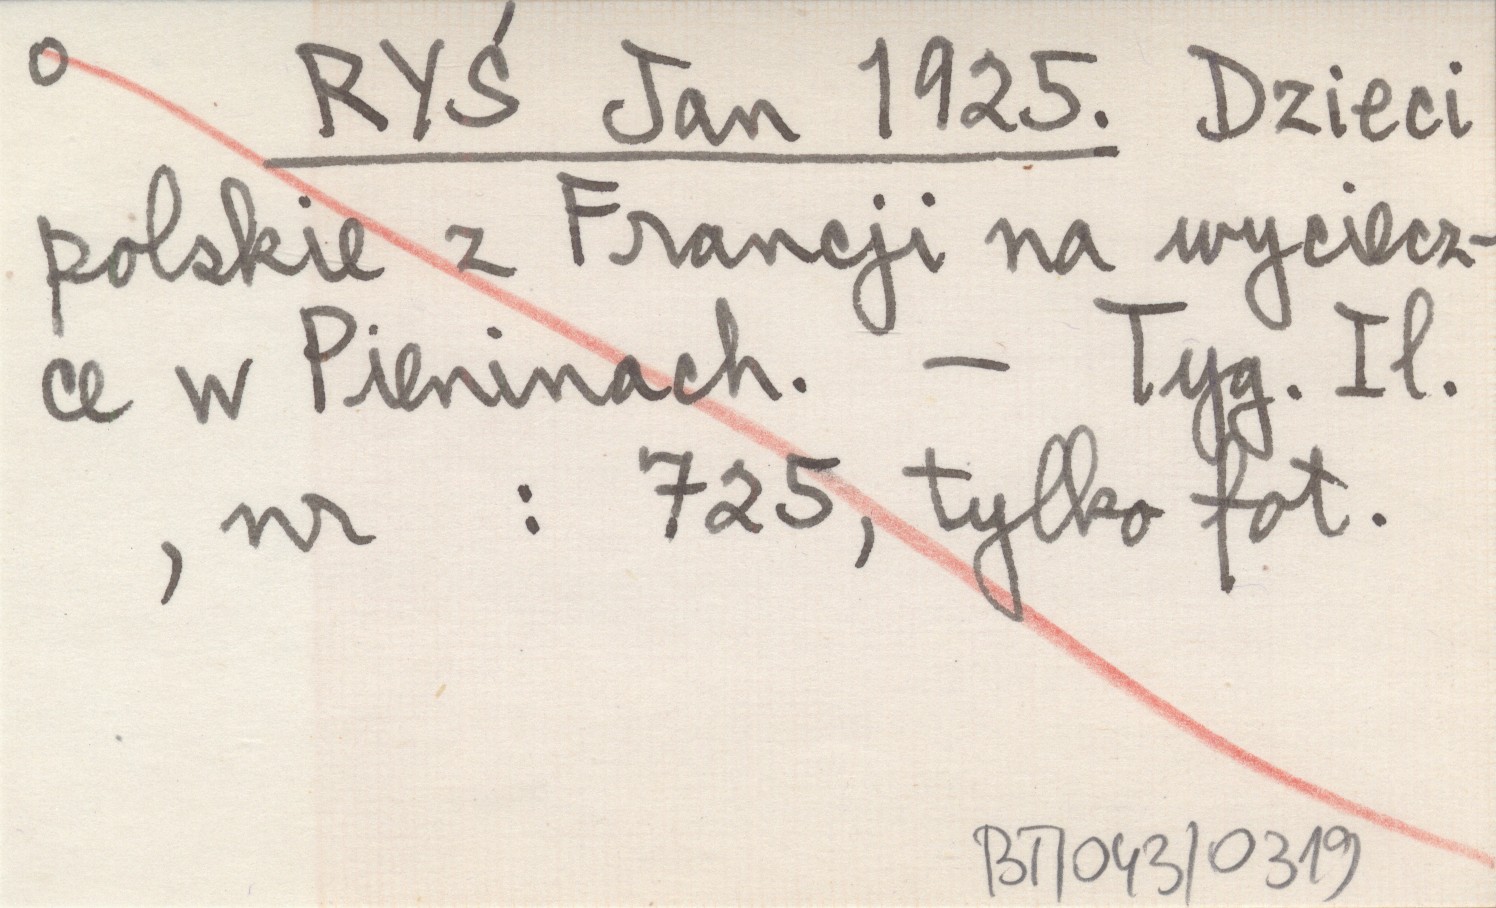 o RYŚ Jan 1925. Dzieci
polskie z Francji na wyciecz-
ce w Pieninach. — Tyg. Il.
, nr : 725, tylko fot.
BT/043/0319